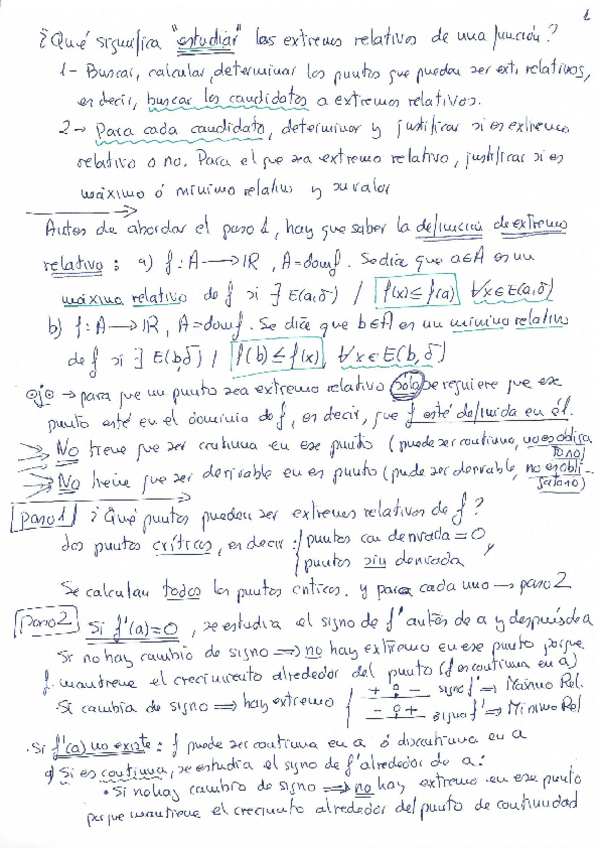 1
¿Qué significa "estudiar" los extremos relativos de una función?
1- Buscar, calcular, determinar los puntos que puedan ser ext. relativos,
es decir, buscar los candidatos a extremos relativos.
2- Para cada candidato, determinar y justificar si es extremo
relativo o no. Para el que sea extremo relativo, justificar si es
máximo ó mínimo relativo y su valor
Antes de abordar el paso 1, hay que saber la definición de extremo
relativo: a) f: A → IR, A = domf. Se dice que a∈A es un
máximo relativo de f si ∃ E(a,δ) / f(x) ≤ f(a) ∀x∈E(a,δ)
b) f: A → IR, A = domf. Se dice que b∈A es un mínimo relativo
de f si ∃ E(b,δ) / f(b) ≤ f(x), ∀x∈E(b,δ)
Ojo → para que un punto sea extremo relativo sólo se requiere que ese
punto esté en el dominio de f, es decir, que f esté definida en él.
No tiene que ser continua en ese punto (puede ser continua, no es obliga
torio)
No tiene que ser derivable en es punto (puede ser derivable, no es obli-
gatorio)
Paso 1 ¿Qué puntos pueden ser extremos relativos de f?
Los puntos críticos, es decir: puntos con derivada = 0
puntos sin derivada
Se calculan todos los puntos críticos. y para cada uno → paso 2
Paso 2 Si f'(a)=0, se estudia el signo de f' antes de a y después de a
Si no hay cambio de signo ⟹ no hay extremo en ese punto porque
f. mantiene el crecimiento alrededor del punto (f es continua en a)
Si cambia de signo ⟹ hay extremo + 0 - signo f' ⟹ Máximo Rel.
- 0 + signo f' ⟹ Mínimo Rel
· Si f'(a) no existe: f puede ser continua en a ó discontinua en a
a) Si es continua, se estudia el signo de f' alrededor de a:
• Si no hay cambio de signo ⟹ no hay extremo en ese punto
porque mantiene el crecimiento alrededor del punto de continuidad